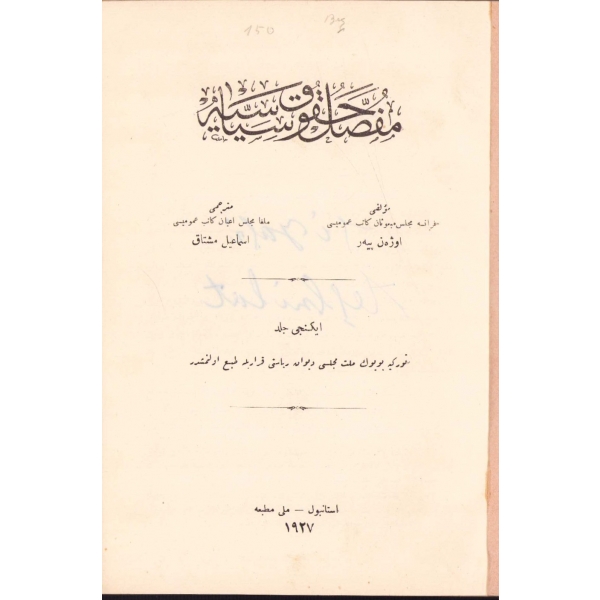 150
مفصّل حقوق سياسيّه
مؤلفى
فرانسه مجلس مبعوثان كاتب عموميسى
اوژەن پيەر
مترجمى
ملغا مجلس اعيان كاتب عموميسى
اسماعيل مشتاق
ايكنجى جلد
توركيه بويوك ملت مجلسى ديوان رياستى قراريله طبع اولنمشدر
استانبول — ملى مطبعه
١٩٢٧